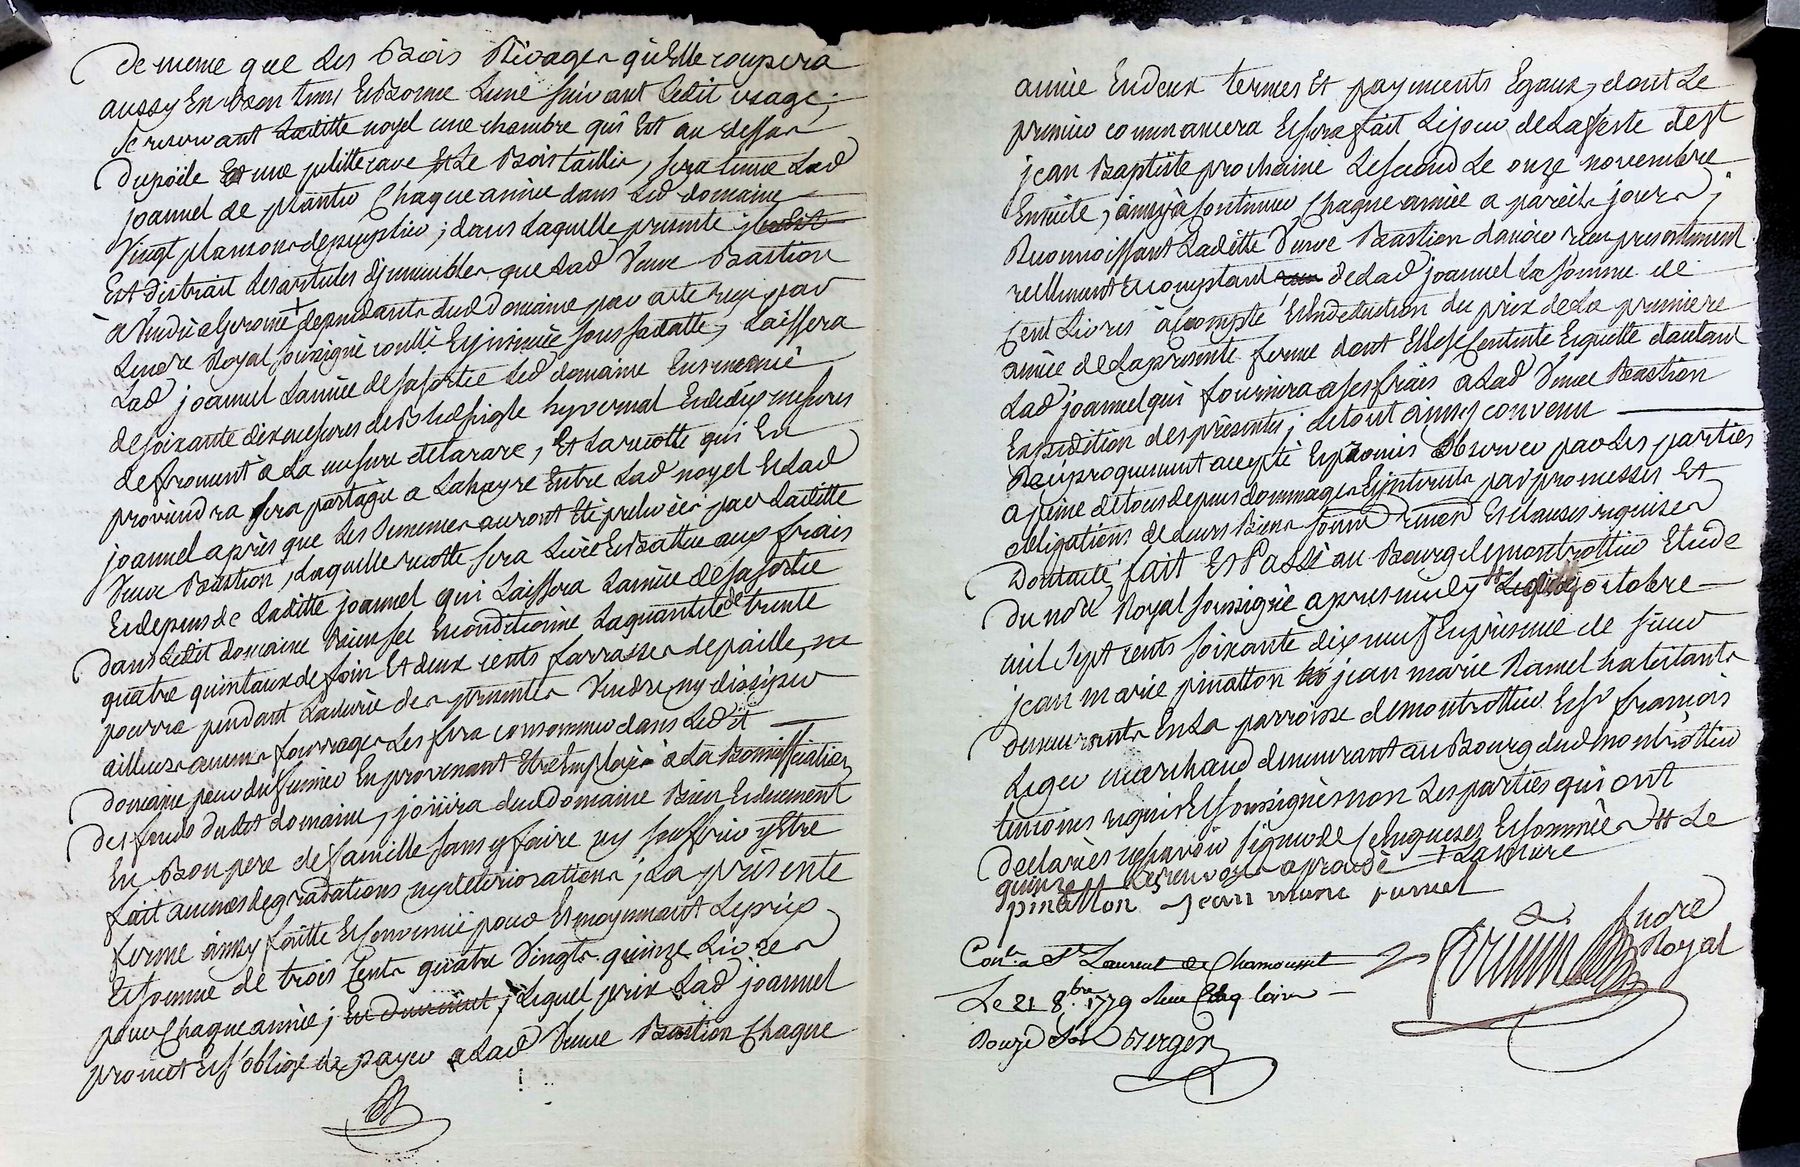 de meme que les Bois Rivages qu'Elle coupera
aussy En Bon tems Et Bonne Lune suivant Ledit usage;
se reservant Laditte noyel une chambre qui Est au dessus
du poile Et une petitte cave Et Le Bois taillis, sera tenue Lad
joannel de planter Chaque année dans Led domaine
Vingt plansons de peuplier; dans Laquelle presente
Est distrait Les articles d'immeubles que Lad Veuve Bastion
à Vendu a Gerome dependants dud Domaine par acte reçu par
Royal soussigné Laissera
Lad joannel L'année de sa sortie Led domaine Ensemencé
de soixante dix mesures de Bled seigle hyvernal Et de dix mesures
de froment a La mesure de tarare, Et La recolte qui En
proviendra sera partagée a Entre Lad noyel Et Lad
joannel après que Les semences auront Eté prelevées par Laditte
Veuve Bastion, Laquelle recolte sera Et Battue aux frais
Et depens de Laditte joannel qui Laissera L'année de sa sortie
dans Ledit domaine Bien sec Et conditionné La quantité de trente
quatre quintaux de foin Et deux cents farrasses de paille, ne
pourra pendant La durée des presentes Vendre ny dissiper
ailleurs aucuns fourrages Les fera consommer dans Ledit
domaine pour du fumier En provenant Etre Employé a La Bonniffication
des fonds dudit domaine, jouira dud Domaine Bien Et duement
En Bon pere de famille sans y faire ny souffrir y Etre
fait aucunes degradations ny deteriorations; La présente
ferme ainsy faitte Et Convenue pour Et moyennant Le prix
Et somme de trois Cents quatre Vingts quinze Livres
pour Chaque année; Lequel prix Lad joannel
promet Et s'oblige de payer a Lad Veuve Bastion Chaque
année En deux termes Et payments Egaux, dont Le
premier commancera Et sera fait Le jour de La feste de st
jean Baptiste prochaine Le second Le onze novembre
Ensuite, ainsy à Continuer Chaque année a pareils jours;
Reconnoissant Laditte Veuve Bastion d'avoir reçu presentement
reellement Et comptant de Lad joannel La somme de
Cent Livres àcompte Et En deduction du prix de La premiere
année de La presente ferme dont Elle se Contente Et quitte d'autant
Lad joannel qui fournira a ses frais a Lad Veuve Bastion
Expedition des présentes; de tout ainsy convenu
Reciproquement accepté Et promis observer par Les parties
a peine de tous depens dommages Et interets par promesses Et
obligations de Leurs Biens soumis renon Et clauses requises
Dont acte fait Et Passé au Bourg de montrottier Etude
du nore Royal soussigné apres midy octobre
mil sept cents soixante dix neuf En presence de sieur
jean marie pinatton jean marie Ramel habitants
demeurants En La parroisse de montrottier Et sr françois
Liger marchand demeurant au Bourg dud montrottier
temoins requis Et soussignés non Les parties qui ont
declarées ne savoir signer de ce Enquises Et sommées # Le
quinze Les renvoys approuvé
pinatton jean marie ramel
André
Royal
Conlé a St Laurent de Chamousset
Le 21 8bre 1779
Berger